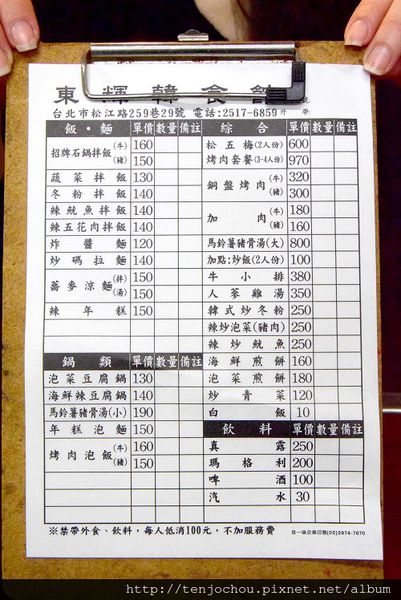 東輝韓食館
台北市松江路259巷29號 電話:2517-6859
飯・麵 單價 數量 備註
招牌石鍋拌飯 (牛) 160
(豬) 150
蔬菜拌飯 130
冬粉拌飯 140
辣魷魚拌飯 140
辣五花肉拌飯 140
炸醬麵 120
炒碼拉麵 140
蕎麥涼麵 (拌) 150
(湯) 150
辣年糕 150
鍋類 單價 數量 備註
泡菜豆腐鍋 130
海鮮辣豆腐鍋 140
馬鈴薯豬骨湯(小) 190
年糕泡麵 150
烤肉泡飯 (牛) 160
(豬) 150
綜合 單價 數量 備註
松五梅(2人份) 600
烤肉套餐(3-4人份) 970
銅盤烤肉 (牛) 320
(豬) 300
加肉 (牛) 180
(豬) 160
馬鈴薯豬骨湯(大) 800
加點:炒飯(2人份) 100
牛小排 380
人蔘雞湯 350
韓式炒冬粉 250
辣炒泡菜(豬肉) 250
辣炒魷魚 250
海鮮煎餅 160
泡菜煎餅 180
炒青菜 120
白飯 10
飲料 單價 數量 備註
真露 250
瑪格利 200
啤酒 100
汽水 30
※禁帶外食、飲料,每人低消100元,不加服務費
http://tenjochou.pixnet.net/album